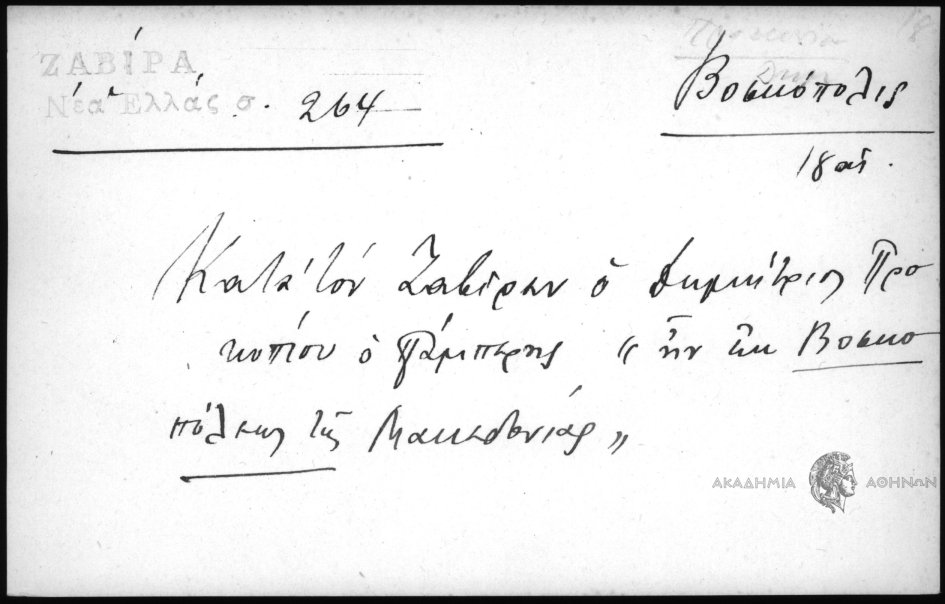 ΖΑΒΙΡΑ
Νέα Ἑλλάς σ. 264
Βοσκόπολις
18 αἰ.
Κατὰ τὸν Ζαβίραν ὁ Δημήτριος Προ
κοπίου ὁ Πάμπερης "ἦν ἐκ Βοσκο
πόλεως τῆς Μακεδονίας"
ΑΚΑΔΗΜΙΑ ΑΘΗΝΩΝ